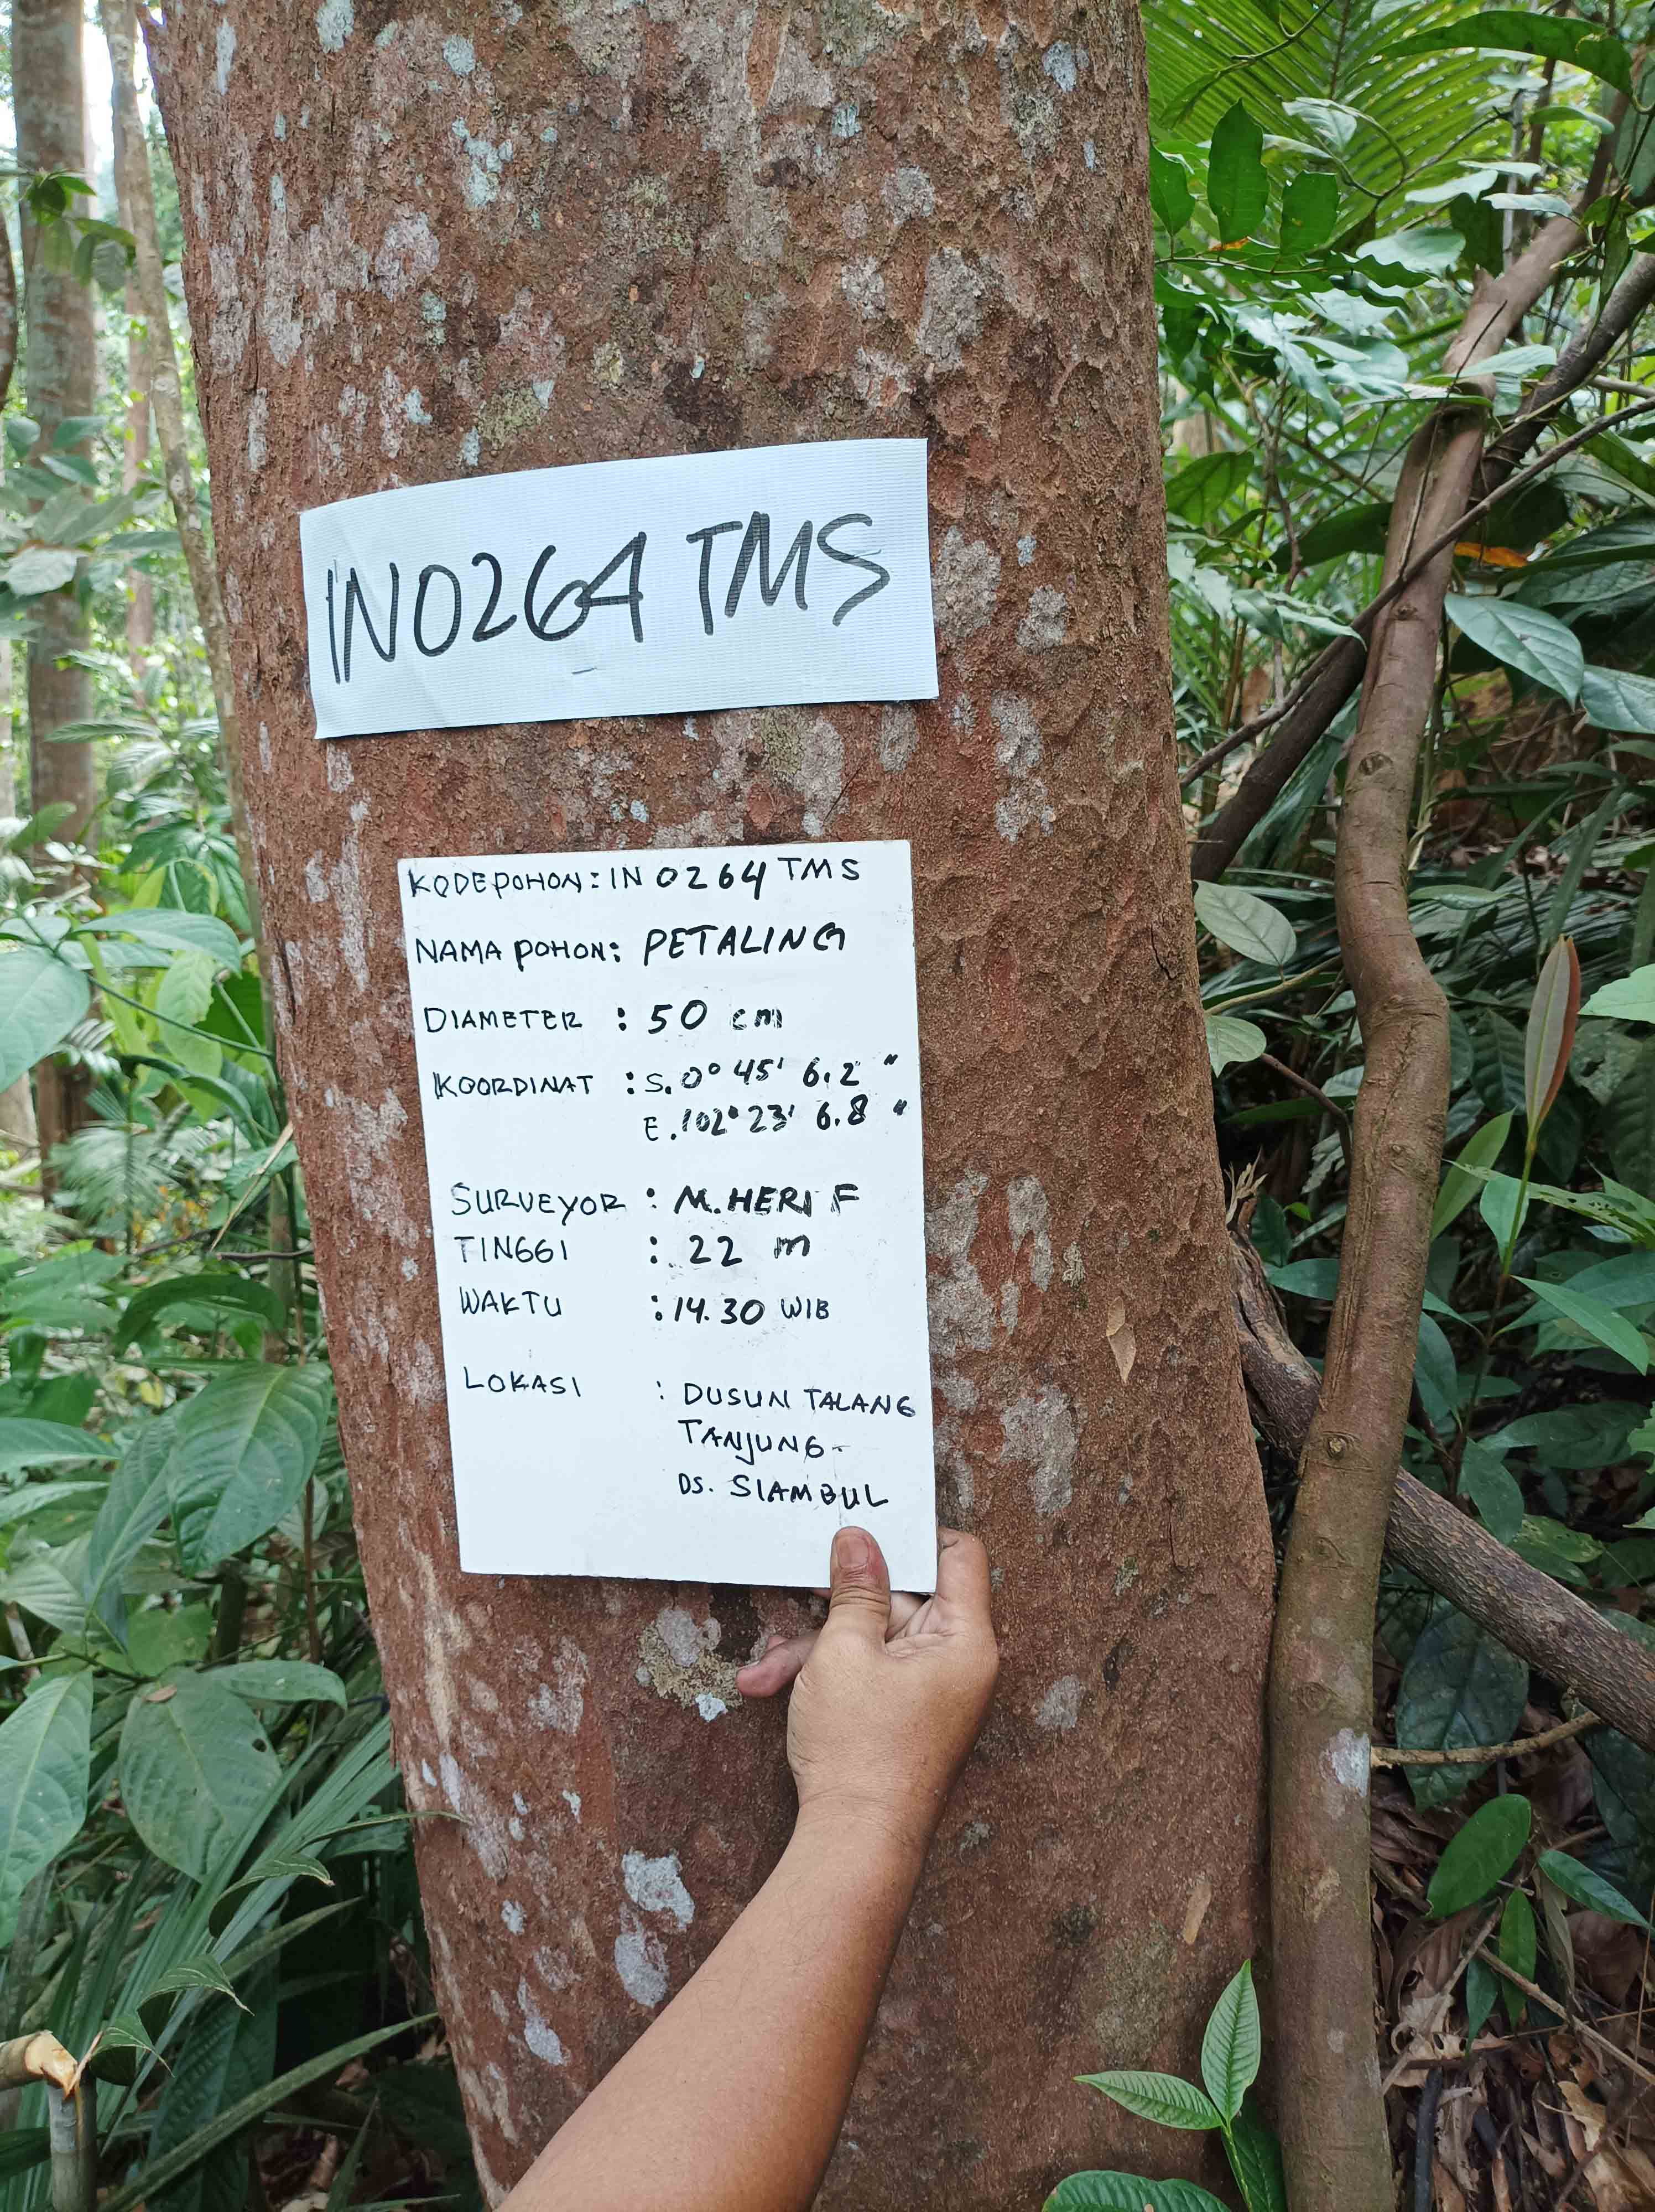 IN0264 TMS
KODE POHON: IN 0264 TMS
NAMA POHON: PETALING
DIAMETER : 50 cm
KOORDINAT : S. 0° 45' 6.2 "
E. 102° 23' 6.8 "
SURVEYOR : M. HERI F
TINGGI : 22 m
WAKTU : 14.30 WIB
LOKASI : DUSUN TALANG
TANJUNG-
DS. SIAMBUL